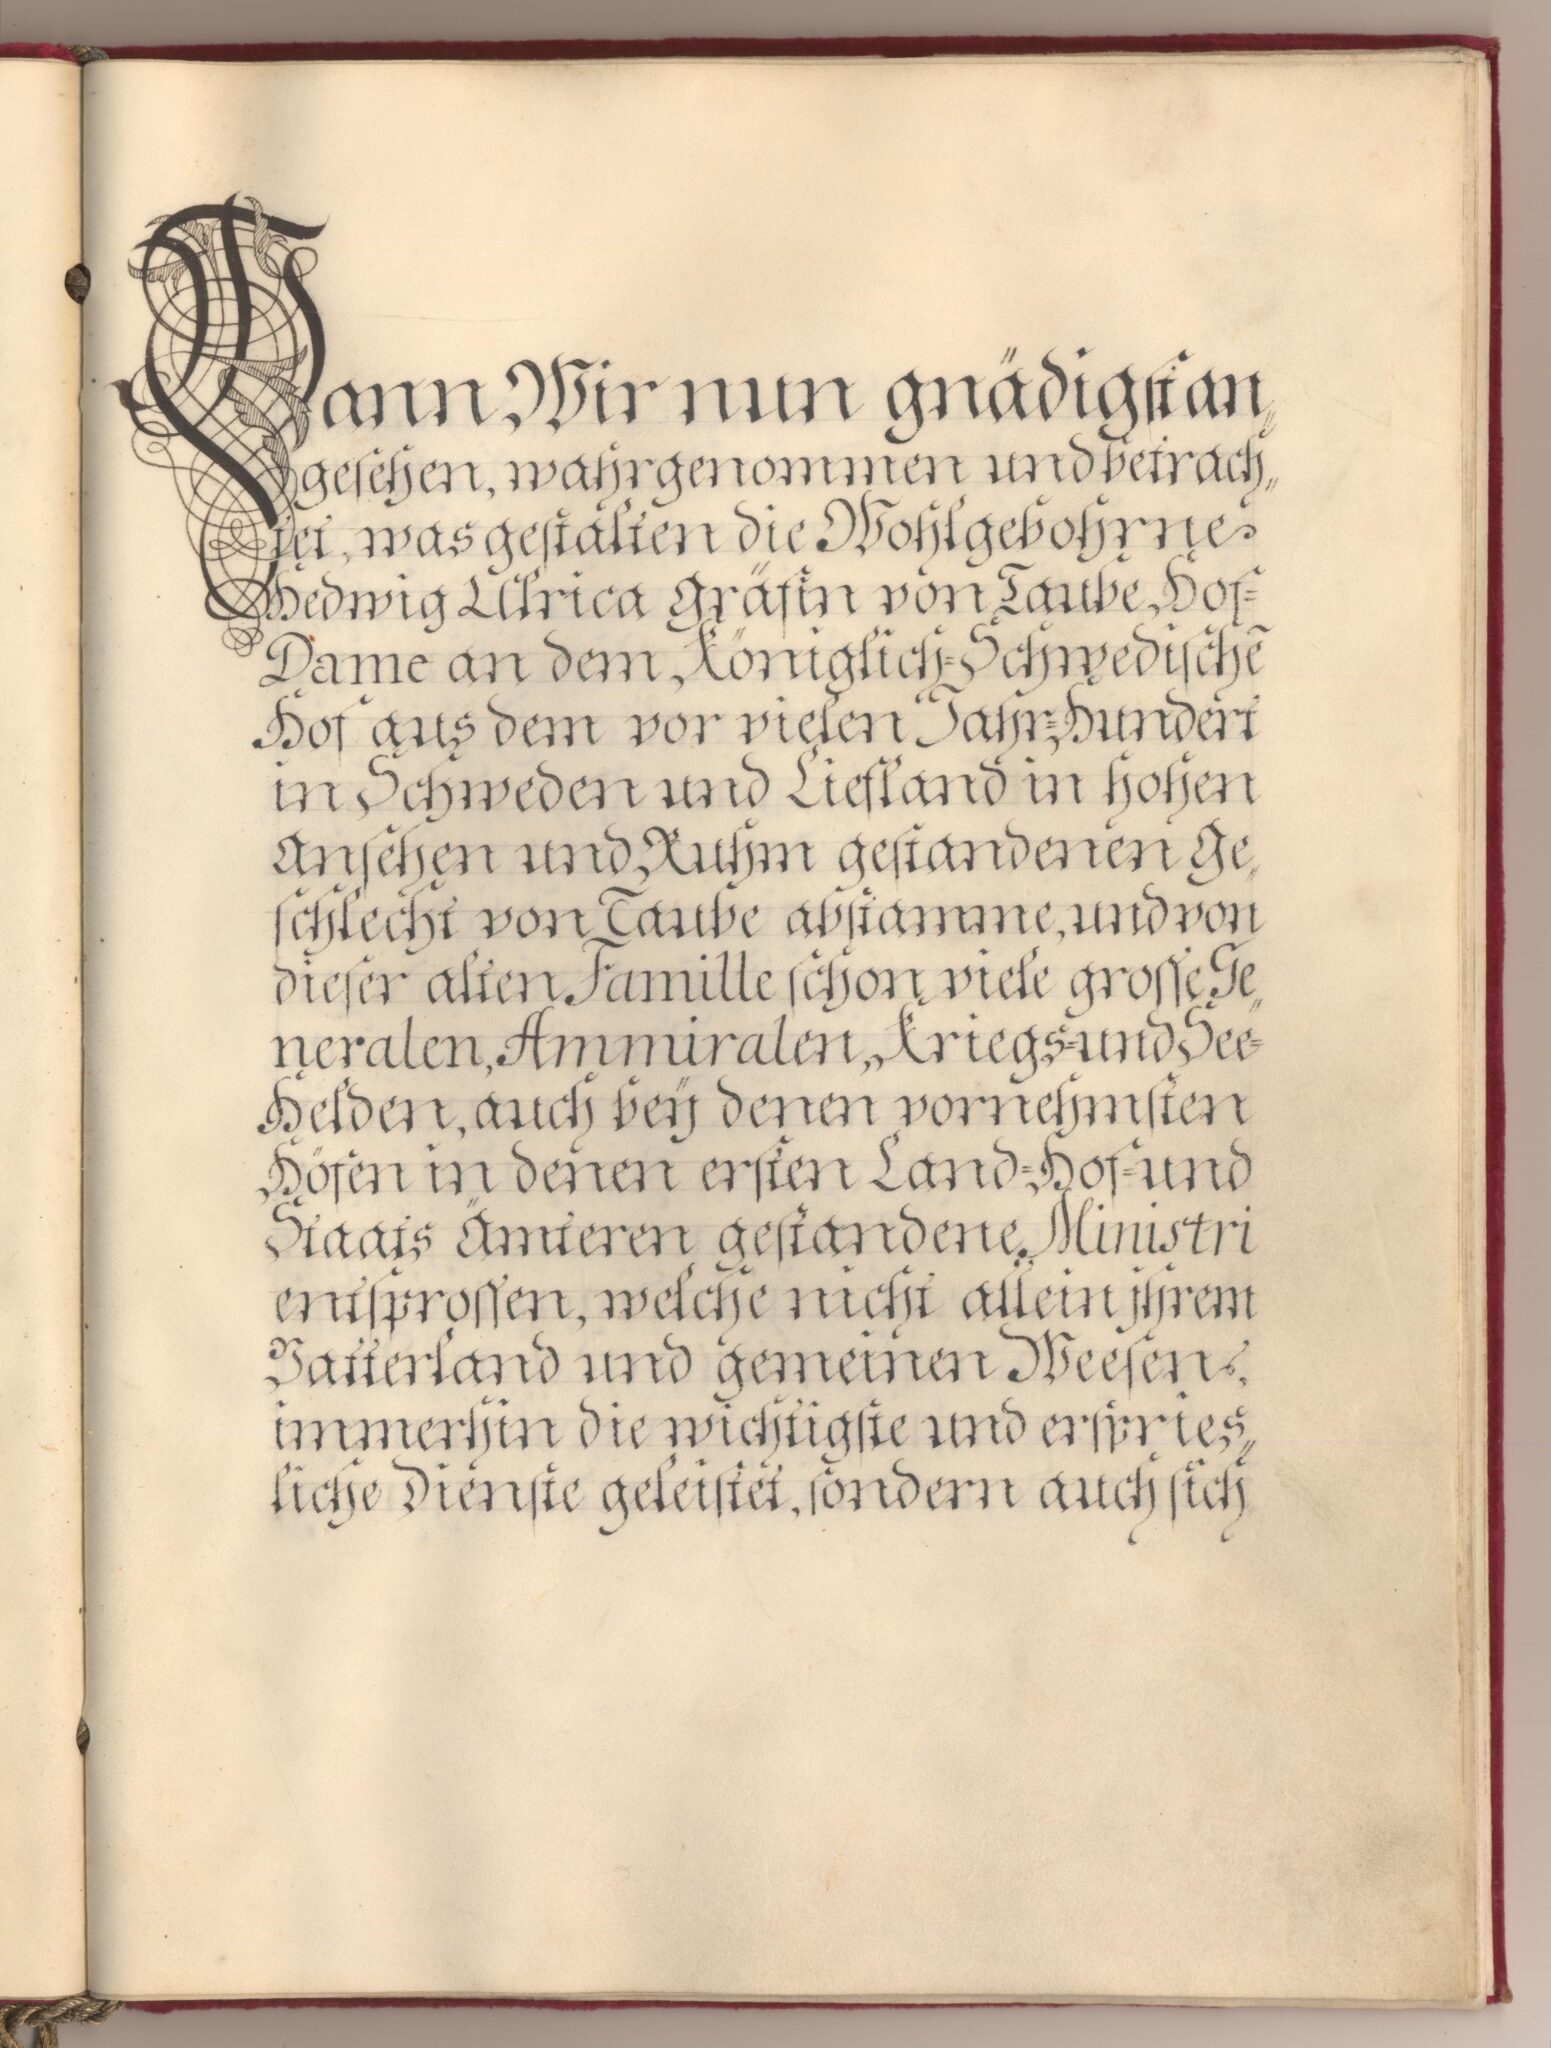 Wann Wir nun gnädigst an„
gesehen, wahrgenommen und betrach„
tet, was gestalten die Wohlgebohrne
Hedwig Ulrica Gräfin von Taube, Hof=
Dame an dem Königlich=Schwedischē
Hof aus dem vor vielen Jahr=Hundert
in Schweden und Liefland in hohen
Ansehen und Ruhm gestandenen Ge„
schlecht von Taube abstamme, und von
dieser alten Famille schon viele grosse Ge„
neralen, Ammiralen, Kriegs=und See=
Helden, auch beÿ denen vornehmsten
Höfen in denen ersten Land=Hof=und
Staats Ämteren gestandene Ministri
entsprossen, welche nicht allein ihrem
Vatterland und gemeinen Weesen,
immerhin die wichtigste und erspries„
liche Dienste geleistet, sondern auch sich